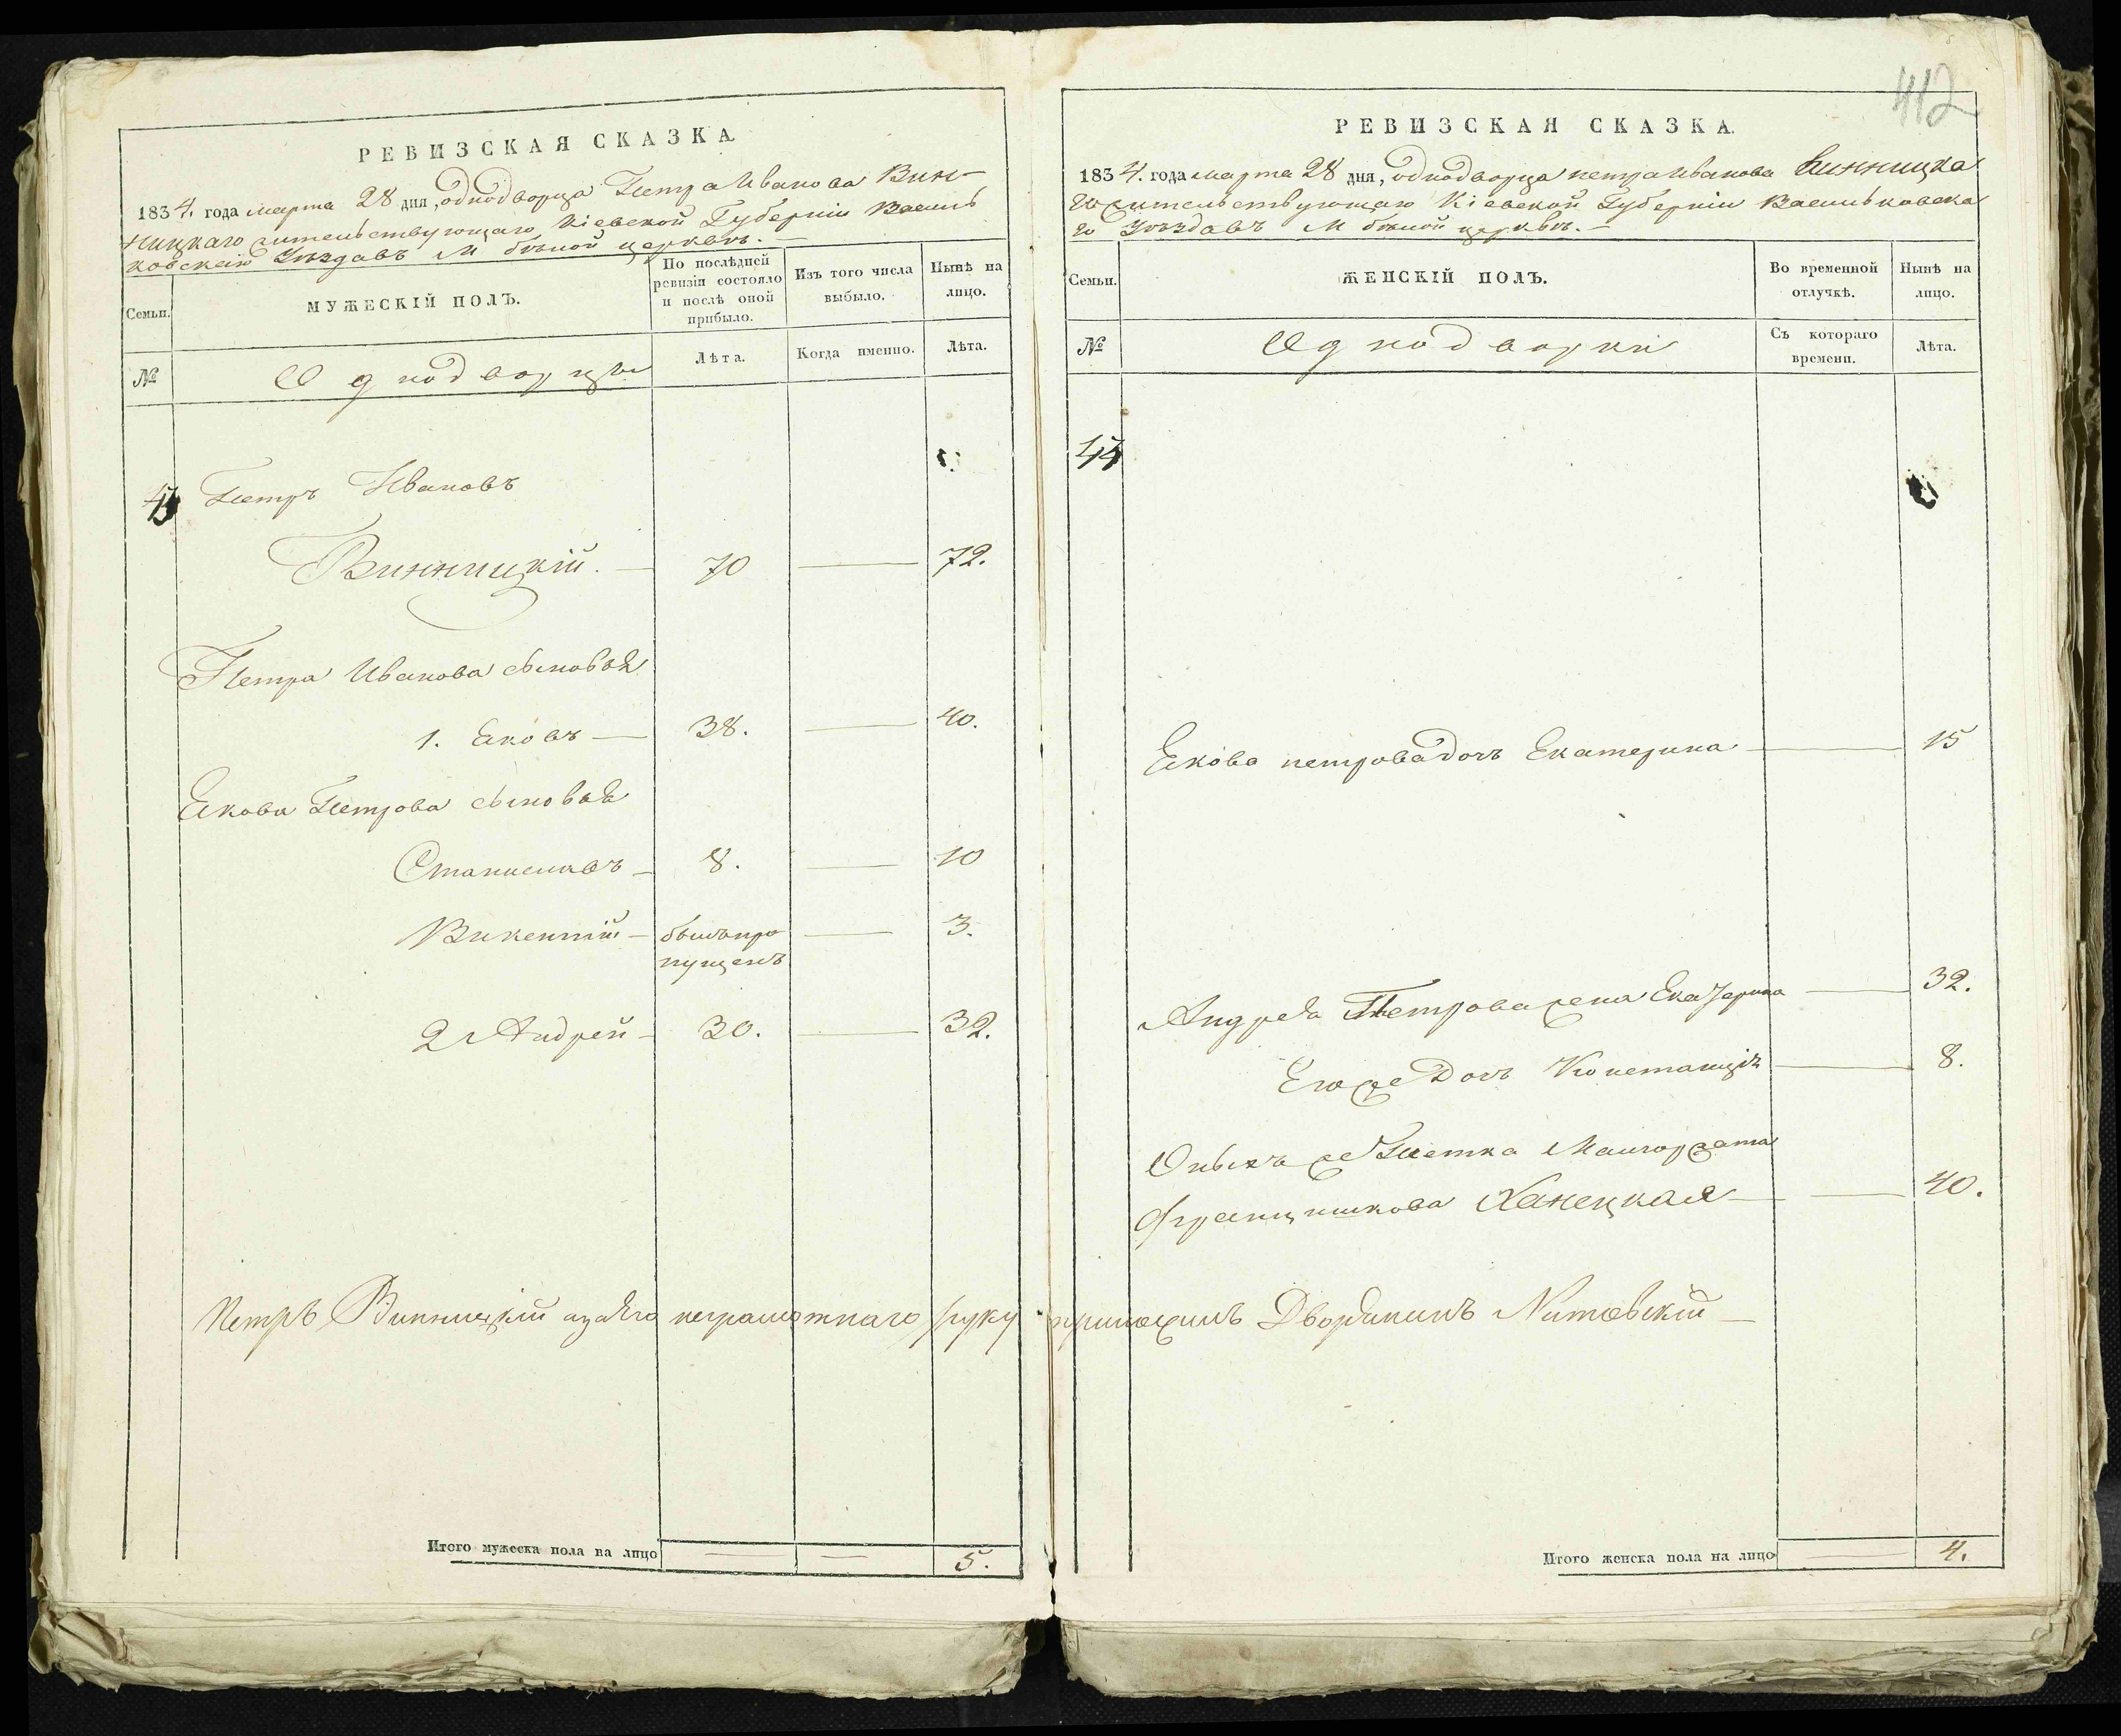 РЕВИЗСКАЯ СКАЗКА
1834. года марта 28 дня, однодворца Петра Иванова Вин-
ницкаго жительствующаго Кіевской Губерніи Василь
ковскаго Уѣзда въ М бѣлой церквѣ. —
Семьи.
МУЖЕСКІЙ ПОЛЪ.
По послѣдней
ревизіи состояло
и послѣ оной
прибыло.
Изъ того числа
выбыло.
Нынѣ на
лицо.
№
Однодворцы
Лѣта.
Когда именно.
Лѣта.
Петръ Ивановъ
Винницкій. — 70 — 72.
Петра Иванова сыновья
1. Яковъ — 38. — 40.
Якова Петрова сыновья
Станиславъ — 8. — 10
Викентій — былъ про — 3.
пущенъ
2 Андрей — 30. — 32.
Петръ Винницкій а за его неграмотнаго руку приложилъ Дворянинъ Витовскій —
Итого мужеска пола на лицо — — 5.
412
РЕВИЗСКАЯ СКАЗКА.
1834. года марта 28 дня, однодворца петра Иванова Винницка
го жительствующаго Кіевской Губерніи Васильковска
го Уѣзда въ М бѣлой церквѣ. —
Семьи.
ЖЕНСКІЙ ПОЛЪ.
Во временной
отлучкѣ.
Нынѣ на
лицо.
№
Однодворки
Съ котораго
времени.
Лѣта.
44
Якова петрова дочь Екатерина — 15
Андрея Петрова жена Екатерина — 32.
Его же Дочь Констанція — 8.
Оныхъ же Тетка Малгоржата
Францишкова Ханецкая — 40.
Итого женска пола на лицо — 4.